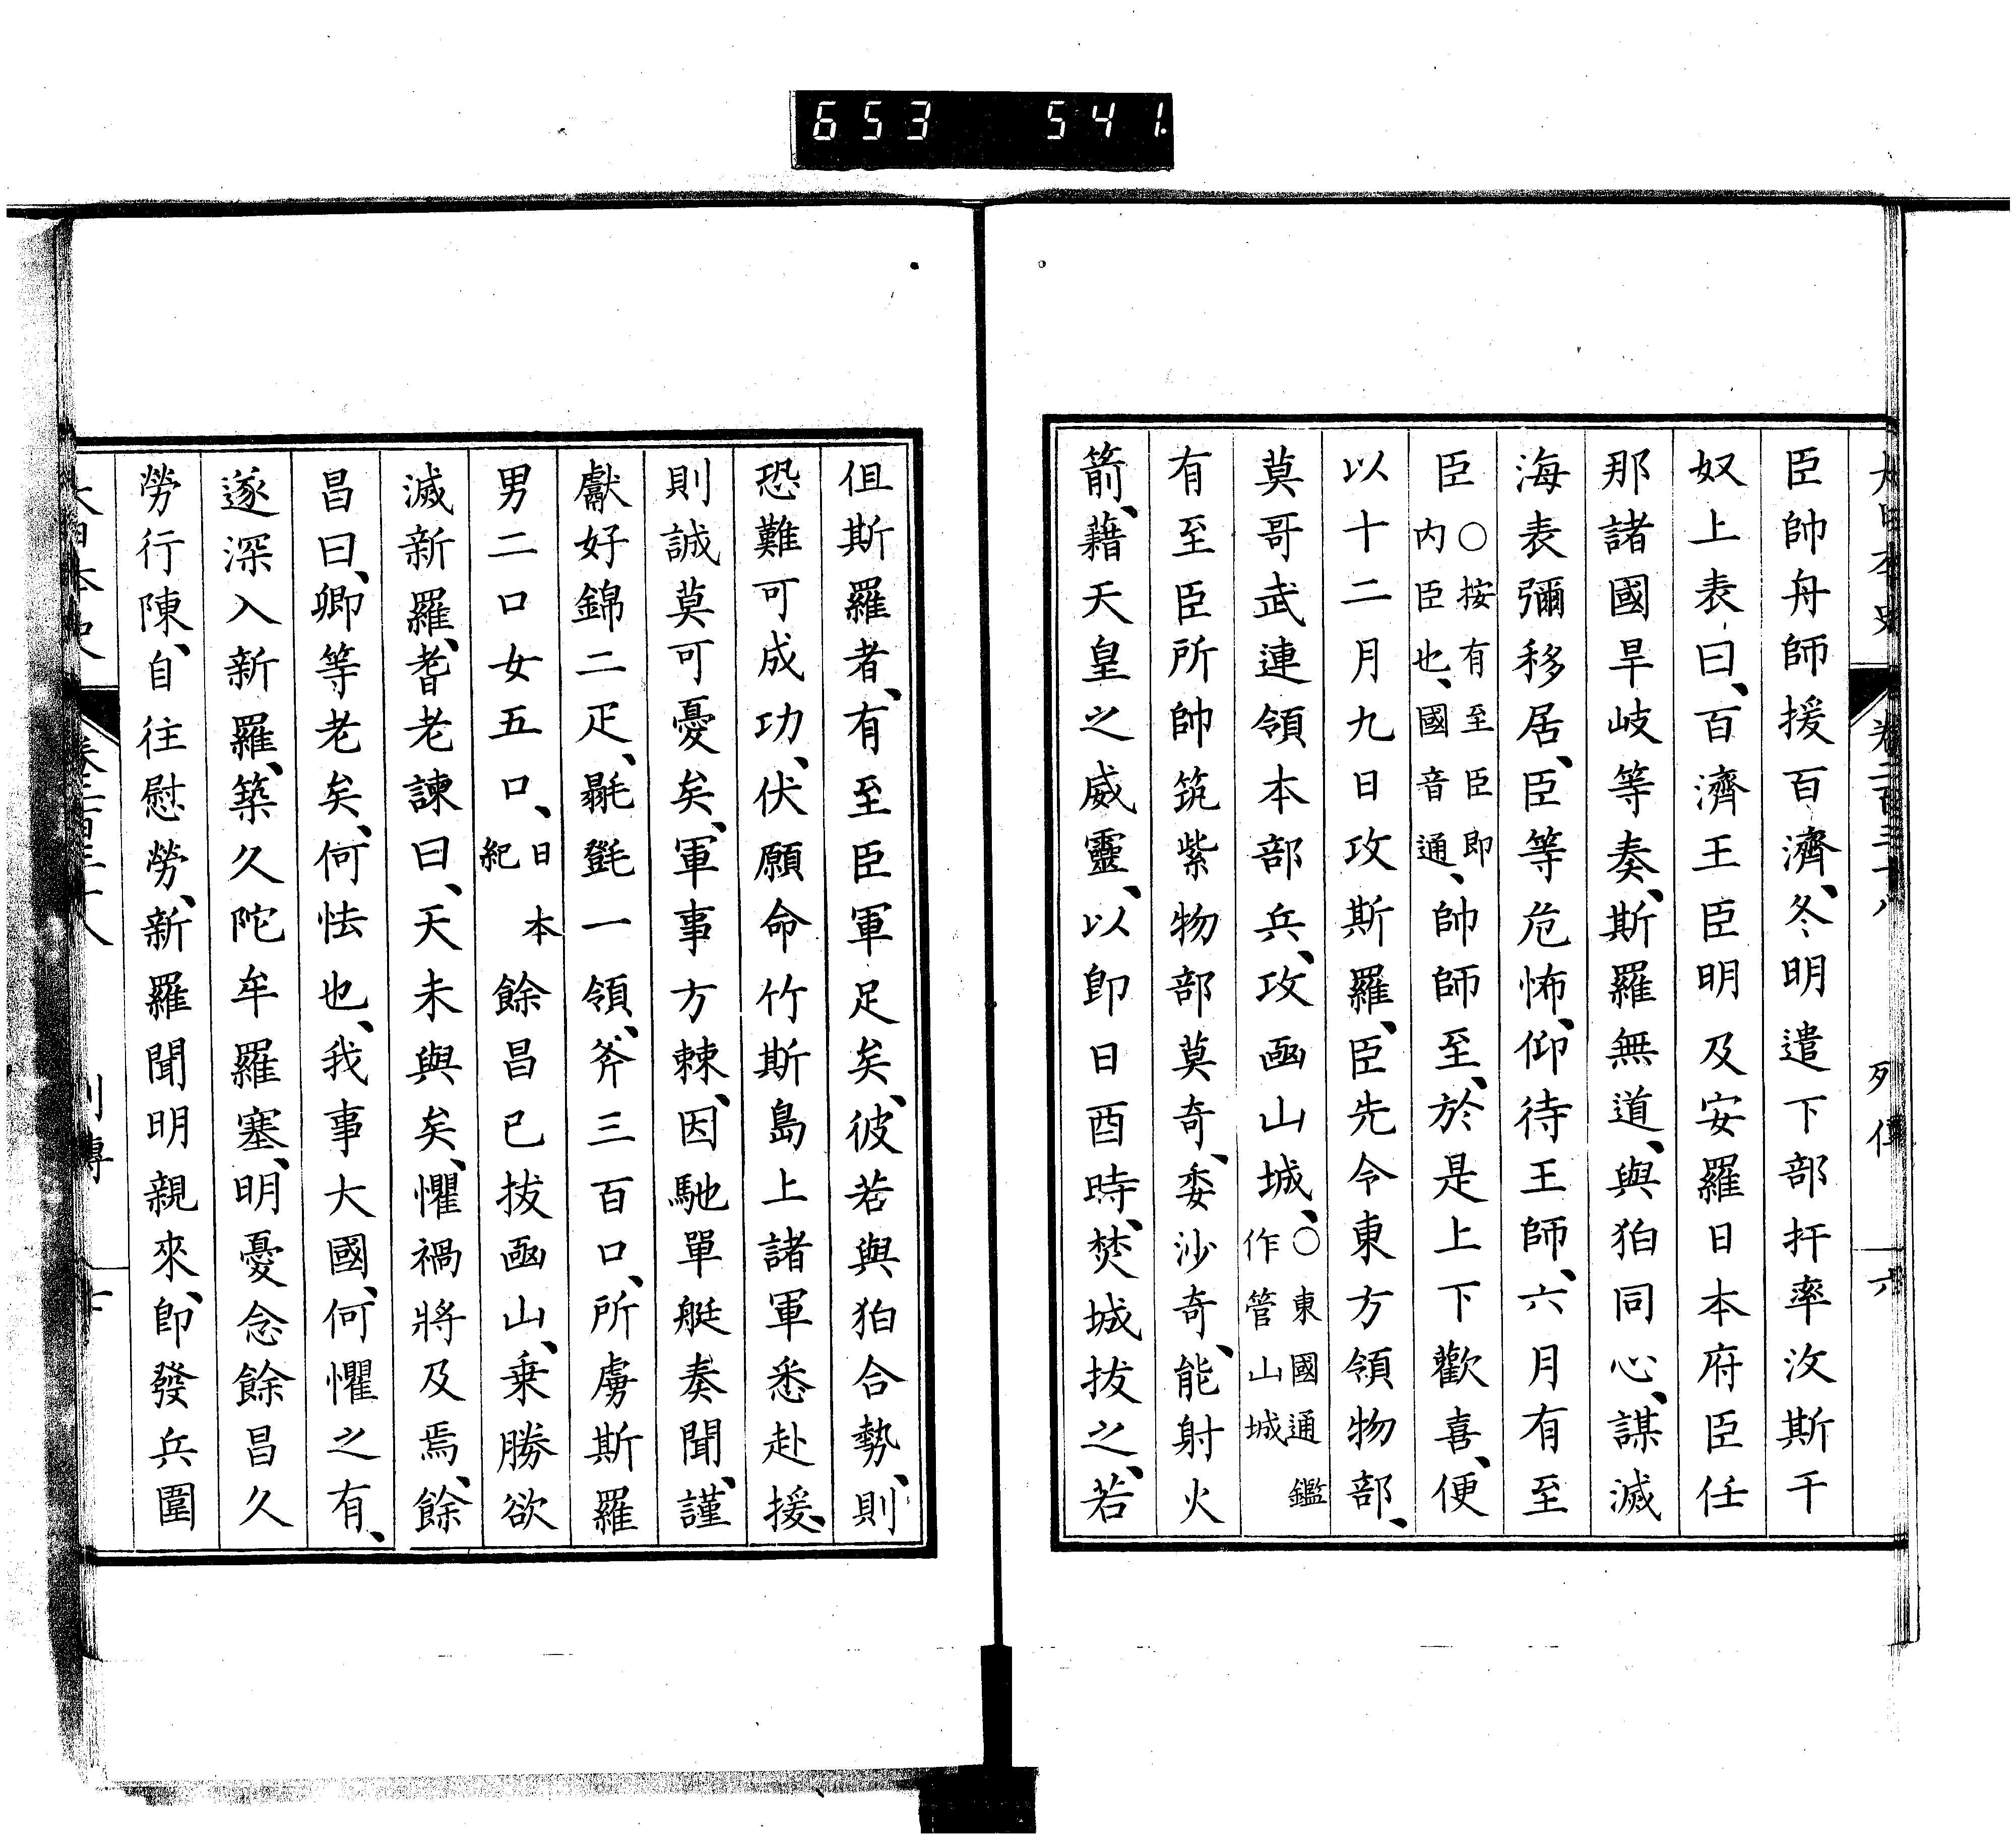 653 541.
大日本史 卷二百三十八 列傳 六
臣帥舟師援百濟、冬明遣下部扞率汶斯干
奴上表曰、百濟王臣明及安羅日本府臣任
那諸國旱岐等奏、斯羅無道、與狛同心、謀滅
海表彌移居、臣等危怖、仰待王師、六月有至
臣○按有至臣即内臣也、國音通、帥師至、於是上下歡喜、便
以十二月九日攻斯羅、臣先令東方領物部、
莫哥武連領本部兵、攻凾山城、○東國通鑑作管山城
有至臣所帥筑紫物部莫奇、委沙奇、能射火
箭、藉天皇之威靈、以即日酉時、焚城拔之、若
但斯羅者、有至臣軍足矣、彼若與狛合勢、則
恐難可成功、伏願命竹斯島上諸軍悉赴援、
則誠莫可憂矣、軍事方棘、因馳單艇奏聞、謹
獻好錦二疋、㲪㲪一領、斧三百口、所虜斯羅
男二口女五口、日本紀餘昌已拔凾山、乗勝欲
滅新羅、耆老諫曰、天未與矣、懼禍將及焉、餘
昌曰、卿等老矣、何怯也、我事大國、何懼之有、
遂深入新羅、築久陀牟羅塞、明憂念餘昌久
勞行陳、自往慰勞、新羅聞明親來、即發兵圍
大日本史 卷二百三十八 列傳 七